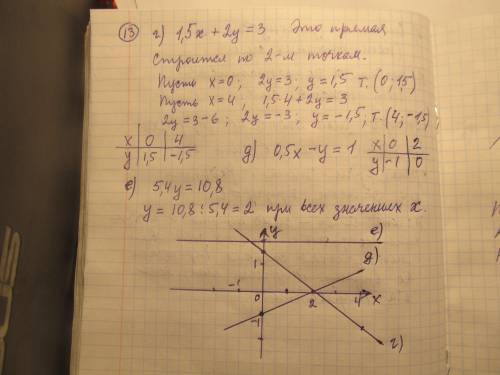 13 г) 1,5x + 2y = 3 Это прямая
Строится по 2-м точкам.
Пусть x=0; 2y=3; y=1,5 т.(0;1,5)
Пусть x=4; 1,5·4+2y=3
2y=3-6; 2y=-3; y=-1,5; т.(4;-1,5);
x 0 4
y 1,5 -1,5
д) 0,5x-y=1
x 0 2
y -1 0
е) 5,4y=10,8
y = 10,8:5,4=2 при всех значениях x.
y е)
д)
1
-1 0 2 4 x
-1
г)